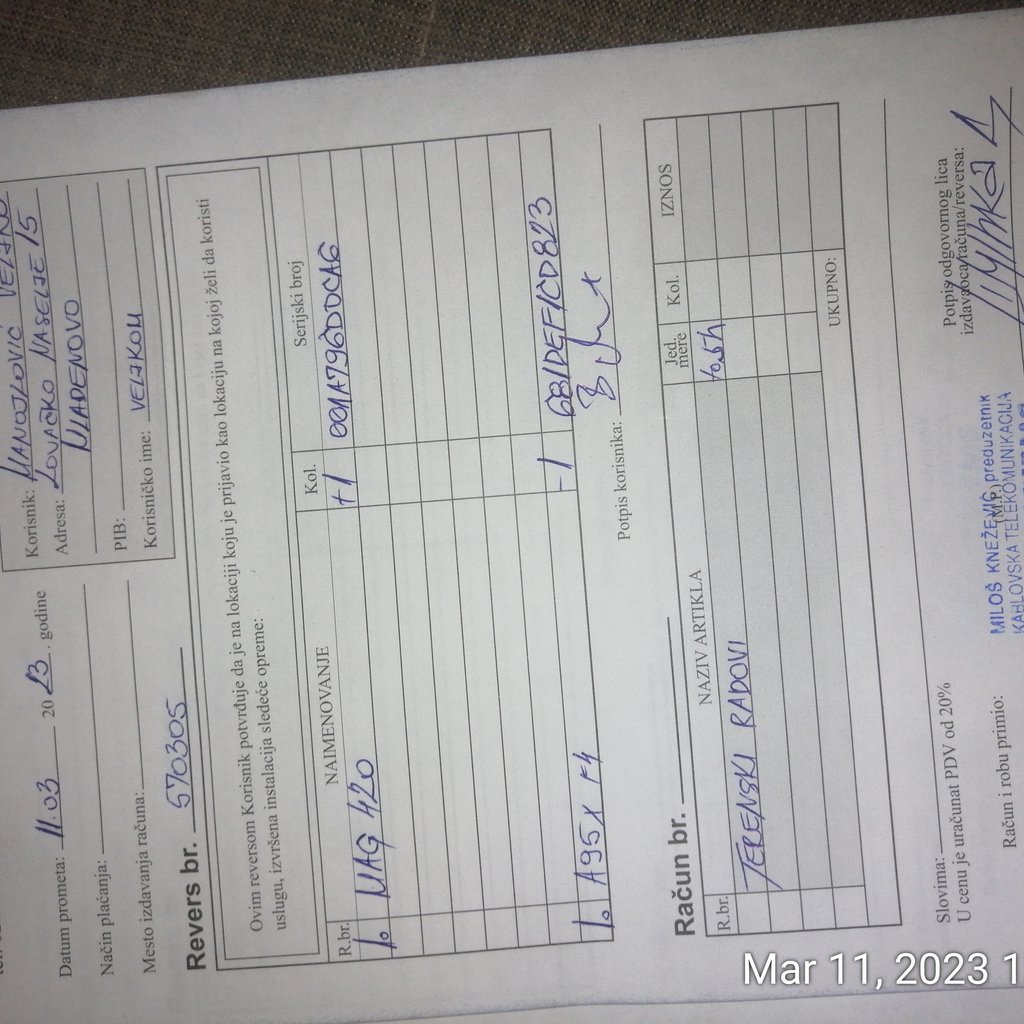 Korisnik: MANOJLOVIĆ VELJKO
Adresa: LOVAČKO NASELJE 15
MLADENOVO
PIB:
Korisničko ime: VELJKOM
Datum prometa: 11.03 2023. godine
Način plaćanja:
Mesto izdavanja računa:
Revers br. 570305
Ovim reversom Korisnik potvrđuje da je na lokaciji koju je prijavio kao lokaciju na kojoj želi da koristi
uslugu, izvršena instalacija sledeće opreme:
R.br. NAIMENOVANJE Kol. Serijski broj
1. MAG 420 +1 001A796DDCA6
1. A95X F4 -1 6B1DEF1CD823
Potpis korisnika:
Račun br.
R.br. NAZIV ARTIKLA Jed. mere Kol. IZNOS
TERENSKI RADOVI
UKUPNO:
Slovima:
U cenu je uračunat PDV od 20%
Račun i robu primio:
(M.P.)
MILOŠ KNEŽEVIĆ preduzetnik
KABLOVSKA TELEKOMUNIKACIJA
Potpis odgovornog lica
izdavaoca računa/reversa:
Mar 11, 2023 1